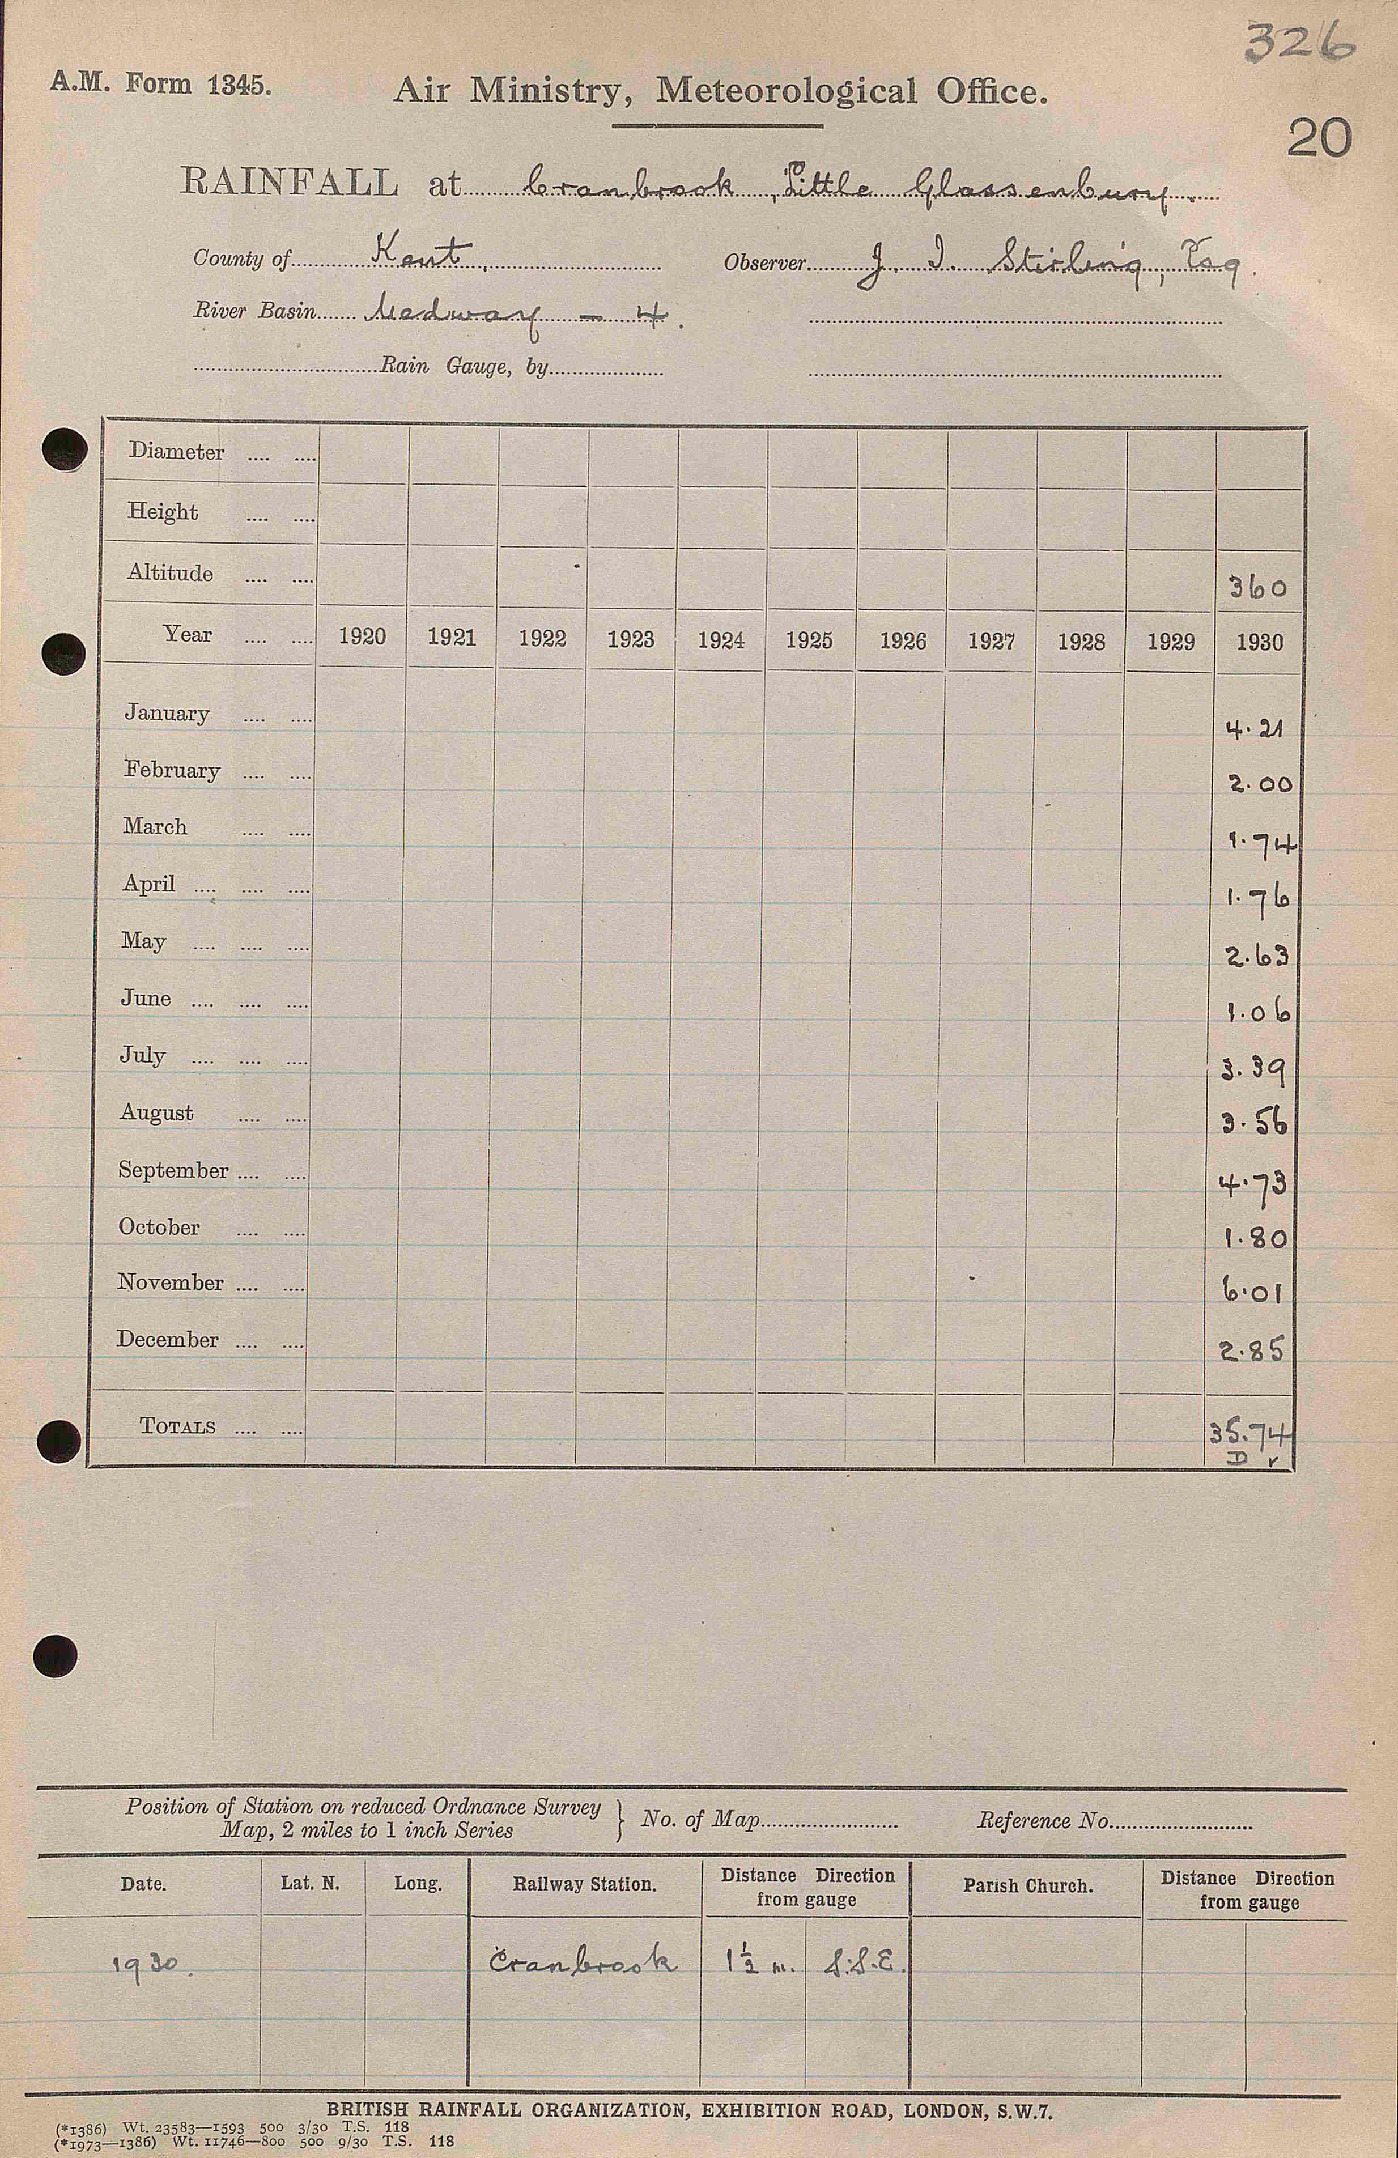 326
A.M. Form 1345. Air Ministry, Meteorological Office.
20
RAINFALL at Cranbrook, Little Glassenbury.
County of Kent, Observer J. I. Stirling, Esq.
River Basin Medway – 4.
Rain Gauge, by
Diameter .... ....
Height .... ....
Altitude .... .... 360
Year .... .... 1920 1921 1922 1923 1924 1925 1926 1927 1928 1929 1930
January .... .... 4.21
February .... .... 2.00
March .... .... 1.74
April .... .... .... 1.76
May .... .... .... 2.63
June .... .... .... 1.06
July .... .... .... 3.39
August .... .... 3.56
September .... .... 4.73
October .... .... 1.80
November .... .... 6.01
December .... .... 2.85
TOTALS .... .... 35.74
D r
Position of Station on reduced Ordnance Survey
Map, 2 miles to 1 inch Series } No. of Map Reference No.
Date. Lat. N. Long. Railway Station. Distance Direction from gauge Parish Church. Distance Direction from gauge
1930. Cranbrook 1½ m. S.S.E.
BRITISH RAINFALL ORGANIZATION, EXHIBITION ROAD, LONDON, S.W.7.
(*1386) Wt. 23583—1593 500 3/30 T.S. 118
(*1973—1386) Wt. 11746—800 500 9/30 T.S. 118